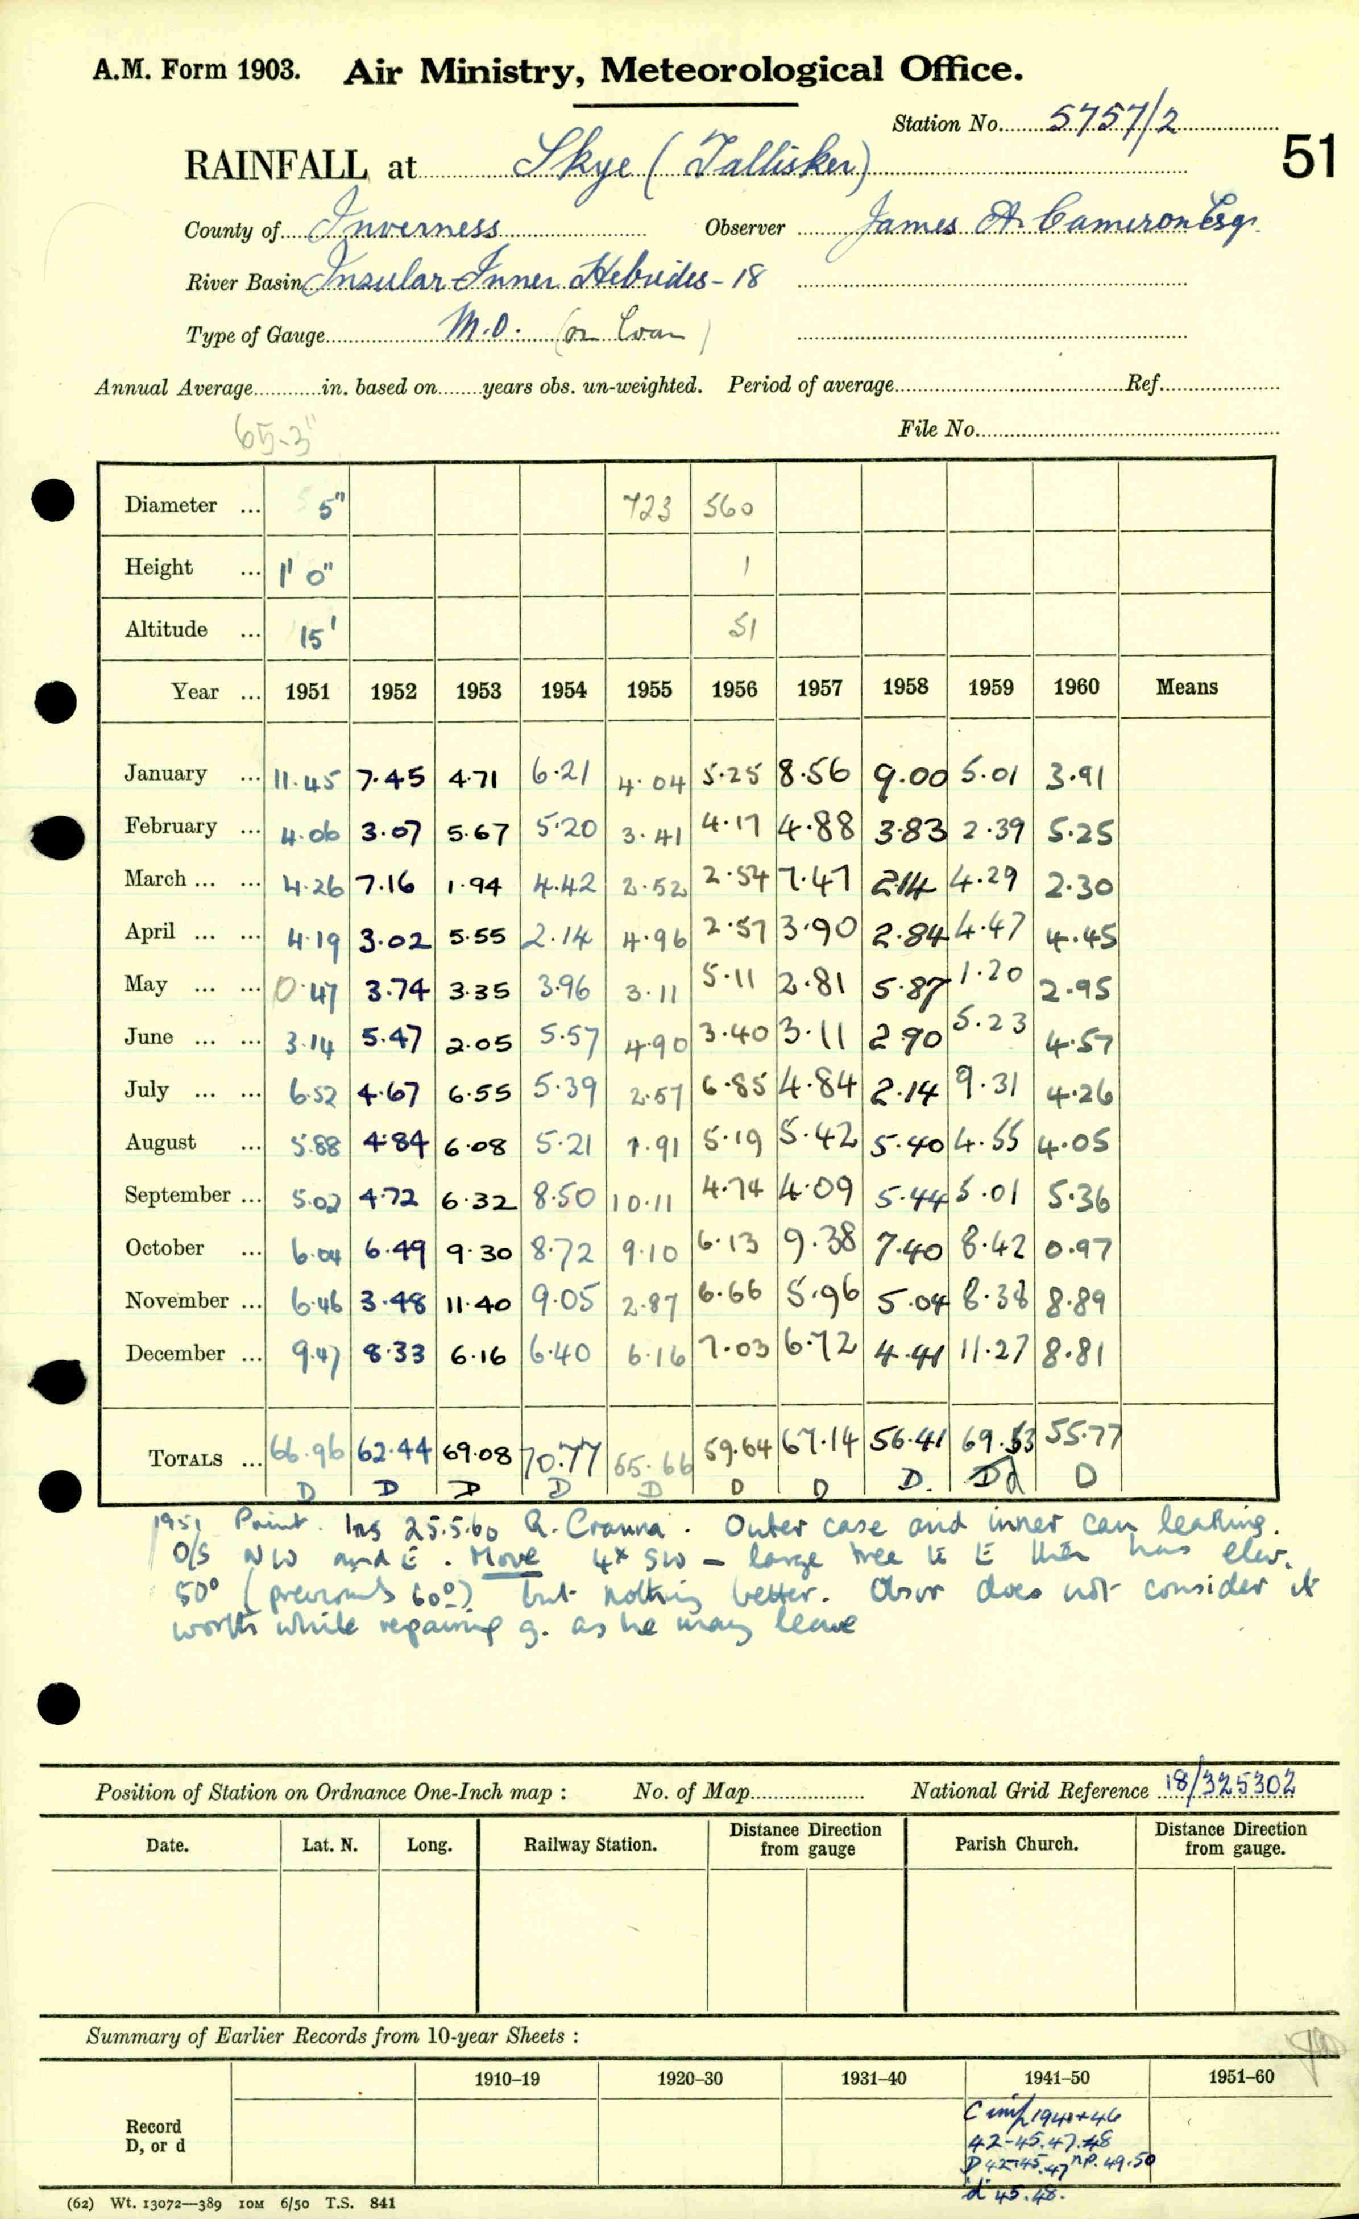 A.M. Form 1903. Air Ministry, Meteorological Office.
Station No. 5757/2
51
RAINFALL at Skye (Tallisker)
County of Inverness Observer James A. Cameron Esq.
River Basin Insular Inner Hebrides - 18
Type of Gauge M.O. (on loan)
Annual Average in. based on years obs. un-weighted. Period of average Ref.
65.3"
File No.
Diameter ... 5" 723 560
Height ... 1' 0" 1
Altitude ... 15' 51
Year ... 1951 1952 1953 1954 1955 1956 1957 1958 1959 1960 Means
January ... 11.45 7.45 4.71 6.21 4.04 5.25 8.56 9.00 5.01 3.91
February ... 4.06 3.07 5.67 5.20 3.41 4.17 4.88 3.83 2.39 5.25
March ... ... 4.26 7.16 1.94 4.42 2.52 2.54 7.47 2.14 4.29 2.30
April ... ... 4.19 3.02 5.55 2.14 4.96 2.57 3.90 2.84 4.47 4.45
May ... ... 0.47 3.74 3.35 3.96 3.11 5.11 2.81 5.87 1.20 2.95
June ... ... 3.14 5.47 2.05 5.57 4.90 3.40 3.11 2.90 5.23 4.57
July ... ... 6.52 4.67 6.55 5.39 2.57 6.85 4.84 2.14 9.31 4.26
August ... 5.88 4.84 6.08 5.21 1.91 5.19 5.42 5.40 4.55 4.05
September ... 5.02 4.72 6.32 8.50 10.11 4.74 4.09 5.44 5.01 5.36
October ... 6.04 6.49 9.30 8.72 9.10 6.13 9.38 7.40 8.42 0.97
November ... 6.46 3.48 11.40 9.05 2.87 6.66 5.96 5.04 8.38 8.89
December ... 9.47 8.33 6.16 6.40 6.16 7.03 6.72 4.41 11.27 8.81
TOTALS ... 66.96 62.44 69.08 70.77 55.66 59.64 67.14 56.41 69.53 55.77
D D D D D D D D. D d D
1951 Paint. Ins 25.5.60 R. Cranna. Outer case and inner can leaking.
O/S NW and E. Move 4x SW - large tree to E then has elev.
50° (previously 60°) but nothing better. Obsr does not consider it
worth while repairing g. as he may leave
Position of Station on Ordnance One-Inch map : No. of Map National Grid Reference 18/325302
Date. Lat. N. Long. Railway Station. Distance from gauge Direction Parish Church. Distance from gauge. Direction
Summary of Earlier Records from 10-year Sheets :
1910-19 1920-30 1931-40 1941-50 1951-60
Record
D, or d
1941+46
42-45.47.48
D 42-45.47 n.p. 49.50
d 45.48.
(62) Wt. 13072—389 10M 6/50 T.S. 841